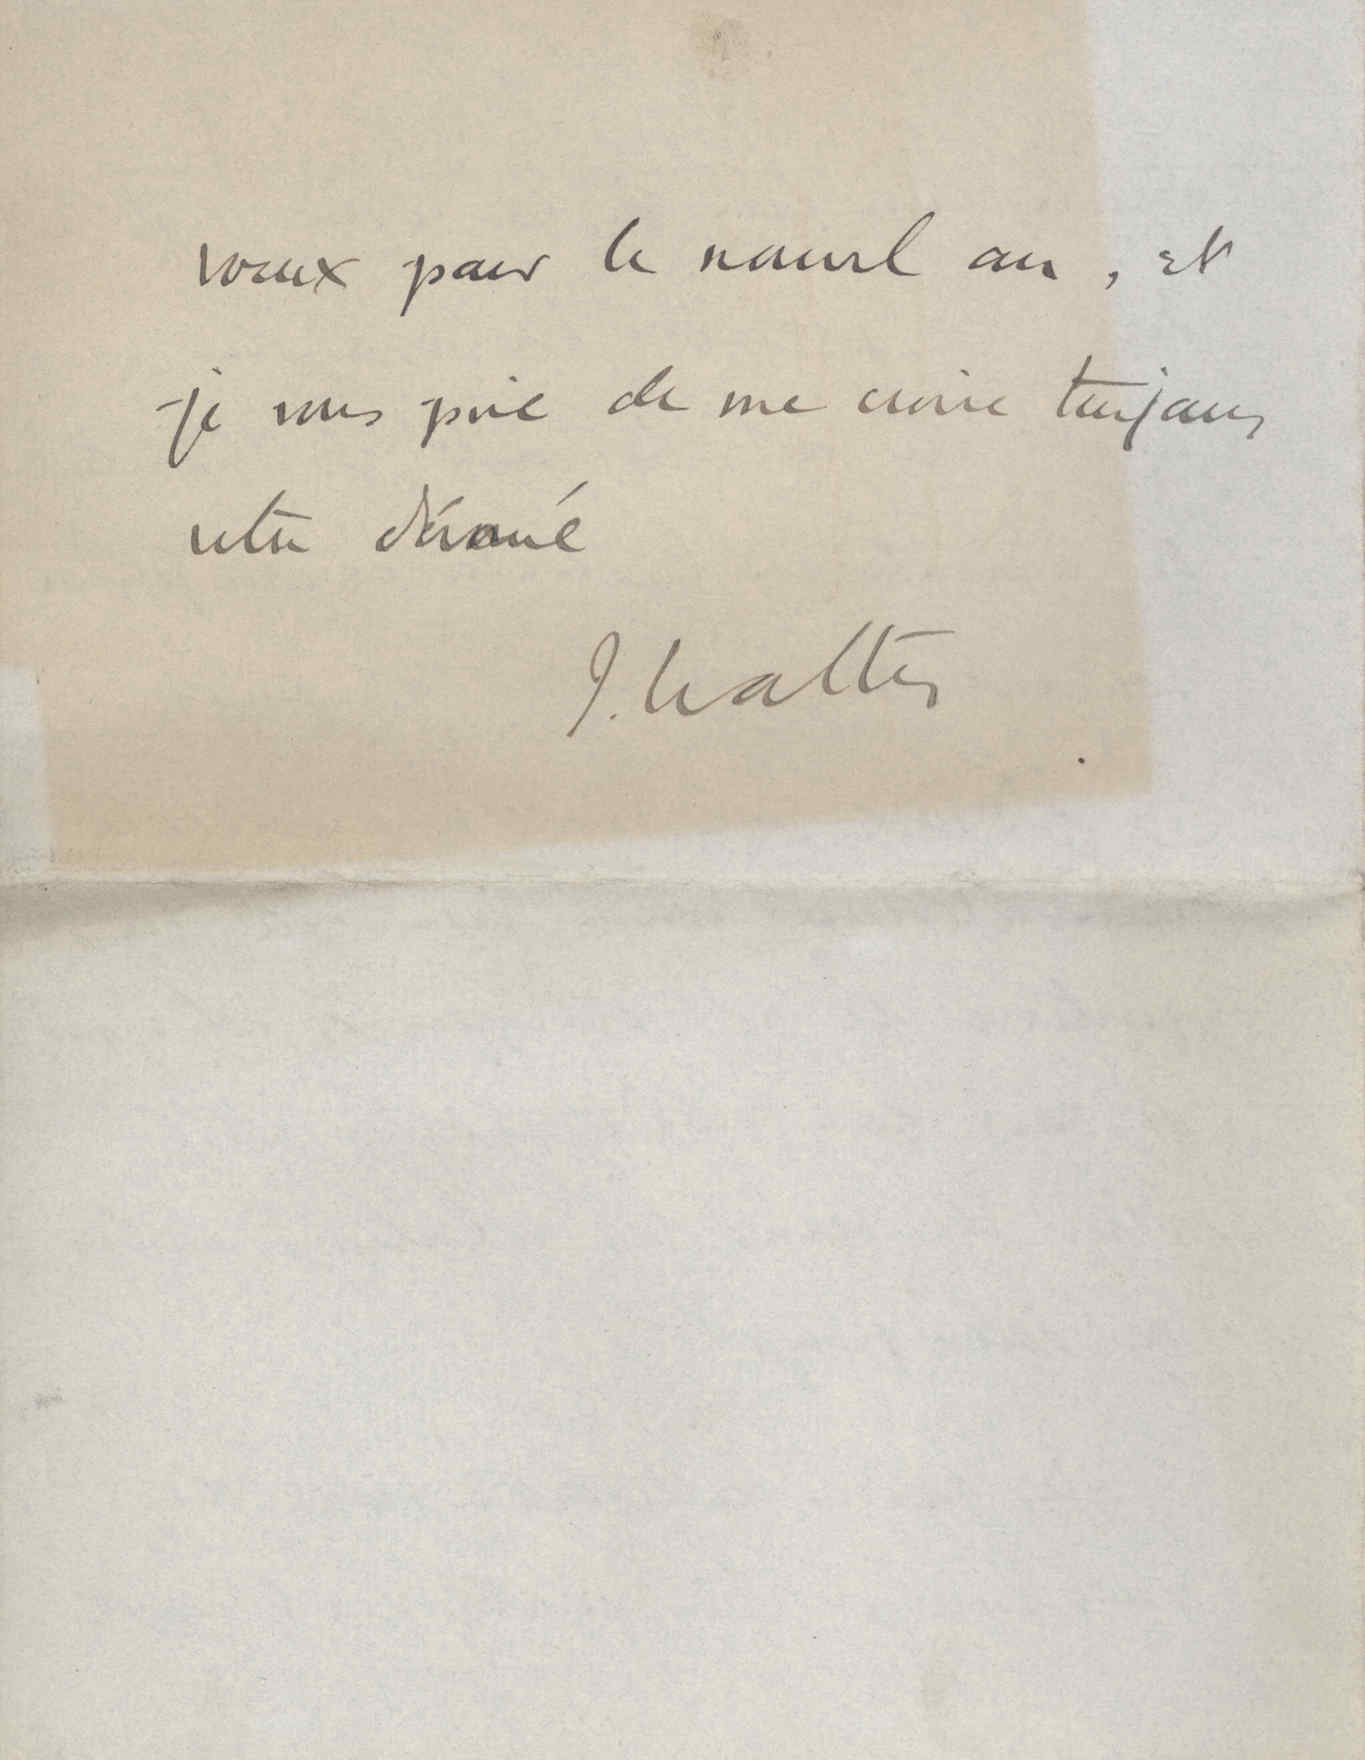 vœux pour le nouvel an, et
je vous prie de me croire toujours
votre dévoué
J. Walter